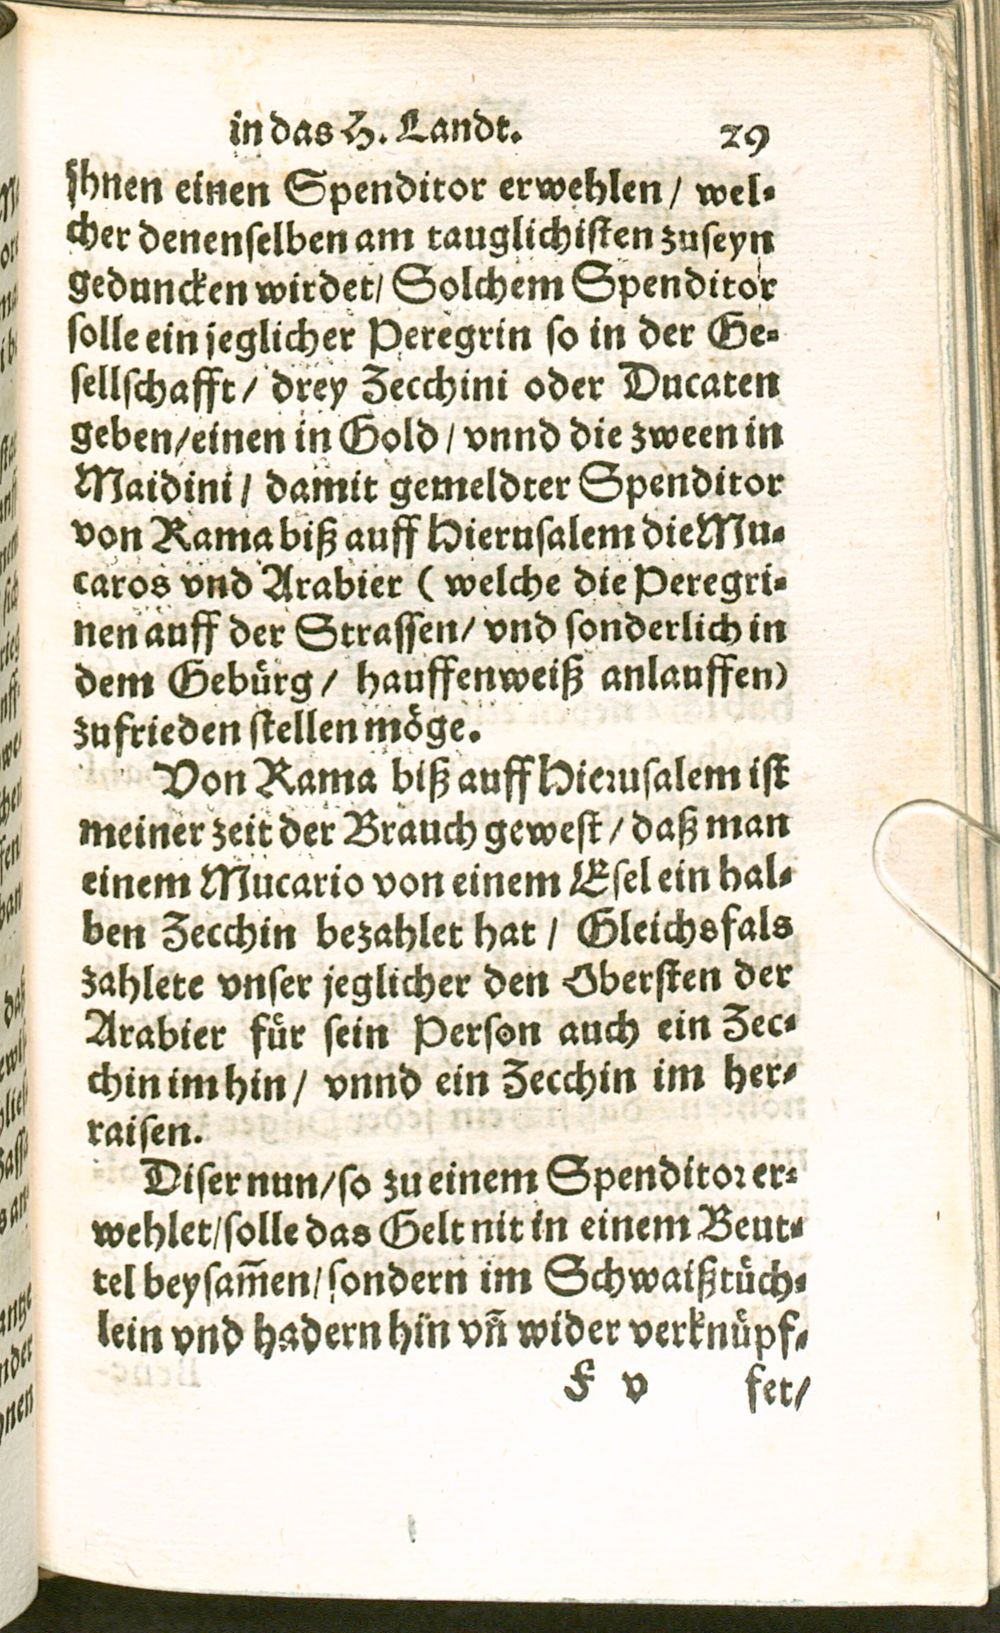 in das H. Landt. 29
jhnen einen Spenditor erwehlen / wel-
cher denenselben am tauglichisten zuseyn
geduncken wirdet / Solchem Spenditor
solle ein jeglicher Peregrin so in der Ge-
sellschafft / drey Zecchini oder Ducaten
geben / einen in Gold / vnnd die zween in
Maidini / damit gemeldter Spenditor
von Rama biß auff Hierusalem die Mu-
caros vnd Arabier ( welche die Peregri-
nen auff der Strassen / vnd sonderlich in
dem Gebürg / hauffenweiß anlauffen)
zufrieden stellen möge.
Von Rama biß auff Hierusalem ist
meiner zeit der Brauch gewest / daß man
einem Mucario von einem Esel ein hal-
ben Zecchin bezahlet hat / Gleichsfals
zahlete vnser jeglicher den Obersten der
Arabier für sein Person auch ein Zec-
chin im hin / vnnd ein Zecchin im her-
raisen.
Diser nun / so zu einem Spenditor er-
wehlet / solle das Gelt nit in einem Beut-
tel beysam̄en / sondern im Schwaißtüch-
lein vnd hadern hin vñ wider verknüpf-
F v fet /